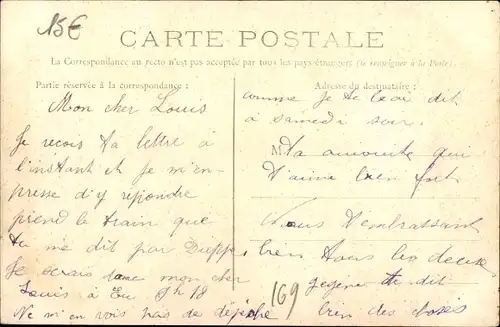 15€
CARTE POSTALE
La Correspondance au recto n'est pas acceptée par tous les pays étrangers (se renseigner à la Poste).
Partie réservée à la correspondance :
Mon cher Louis
Je recois ta lettre à
l'instant et je m'em-
presse d'y répondre
prend le train que
tu me dit par Dieppe
Je serais mon cher
Louis à Eu 9h 18
Ne m'en vois pas de dépêche
Adresse du destinataire :
comme je te l'ai dit
à samedi soir.
M
Ta qui
t'aime bien fort
Nous t'embrassant
bien tous les deux
te dit
bien des choses
169